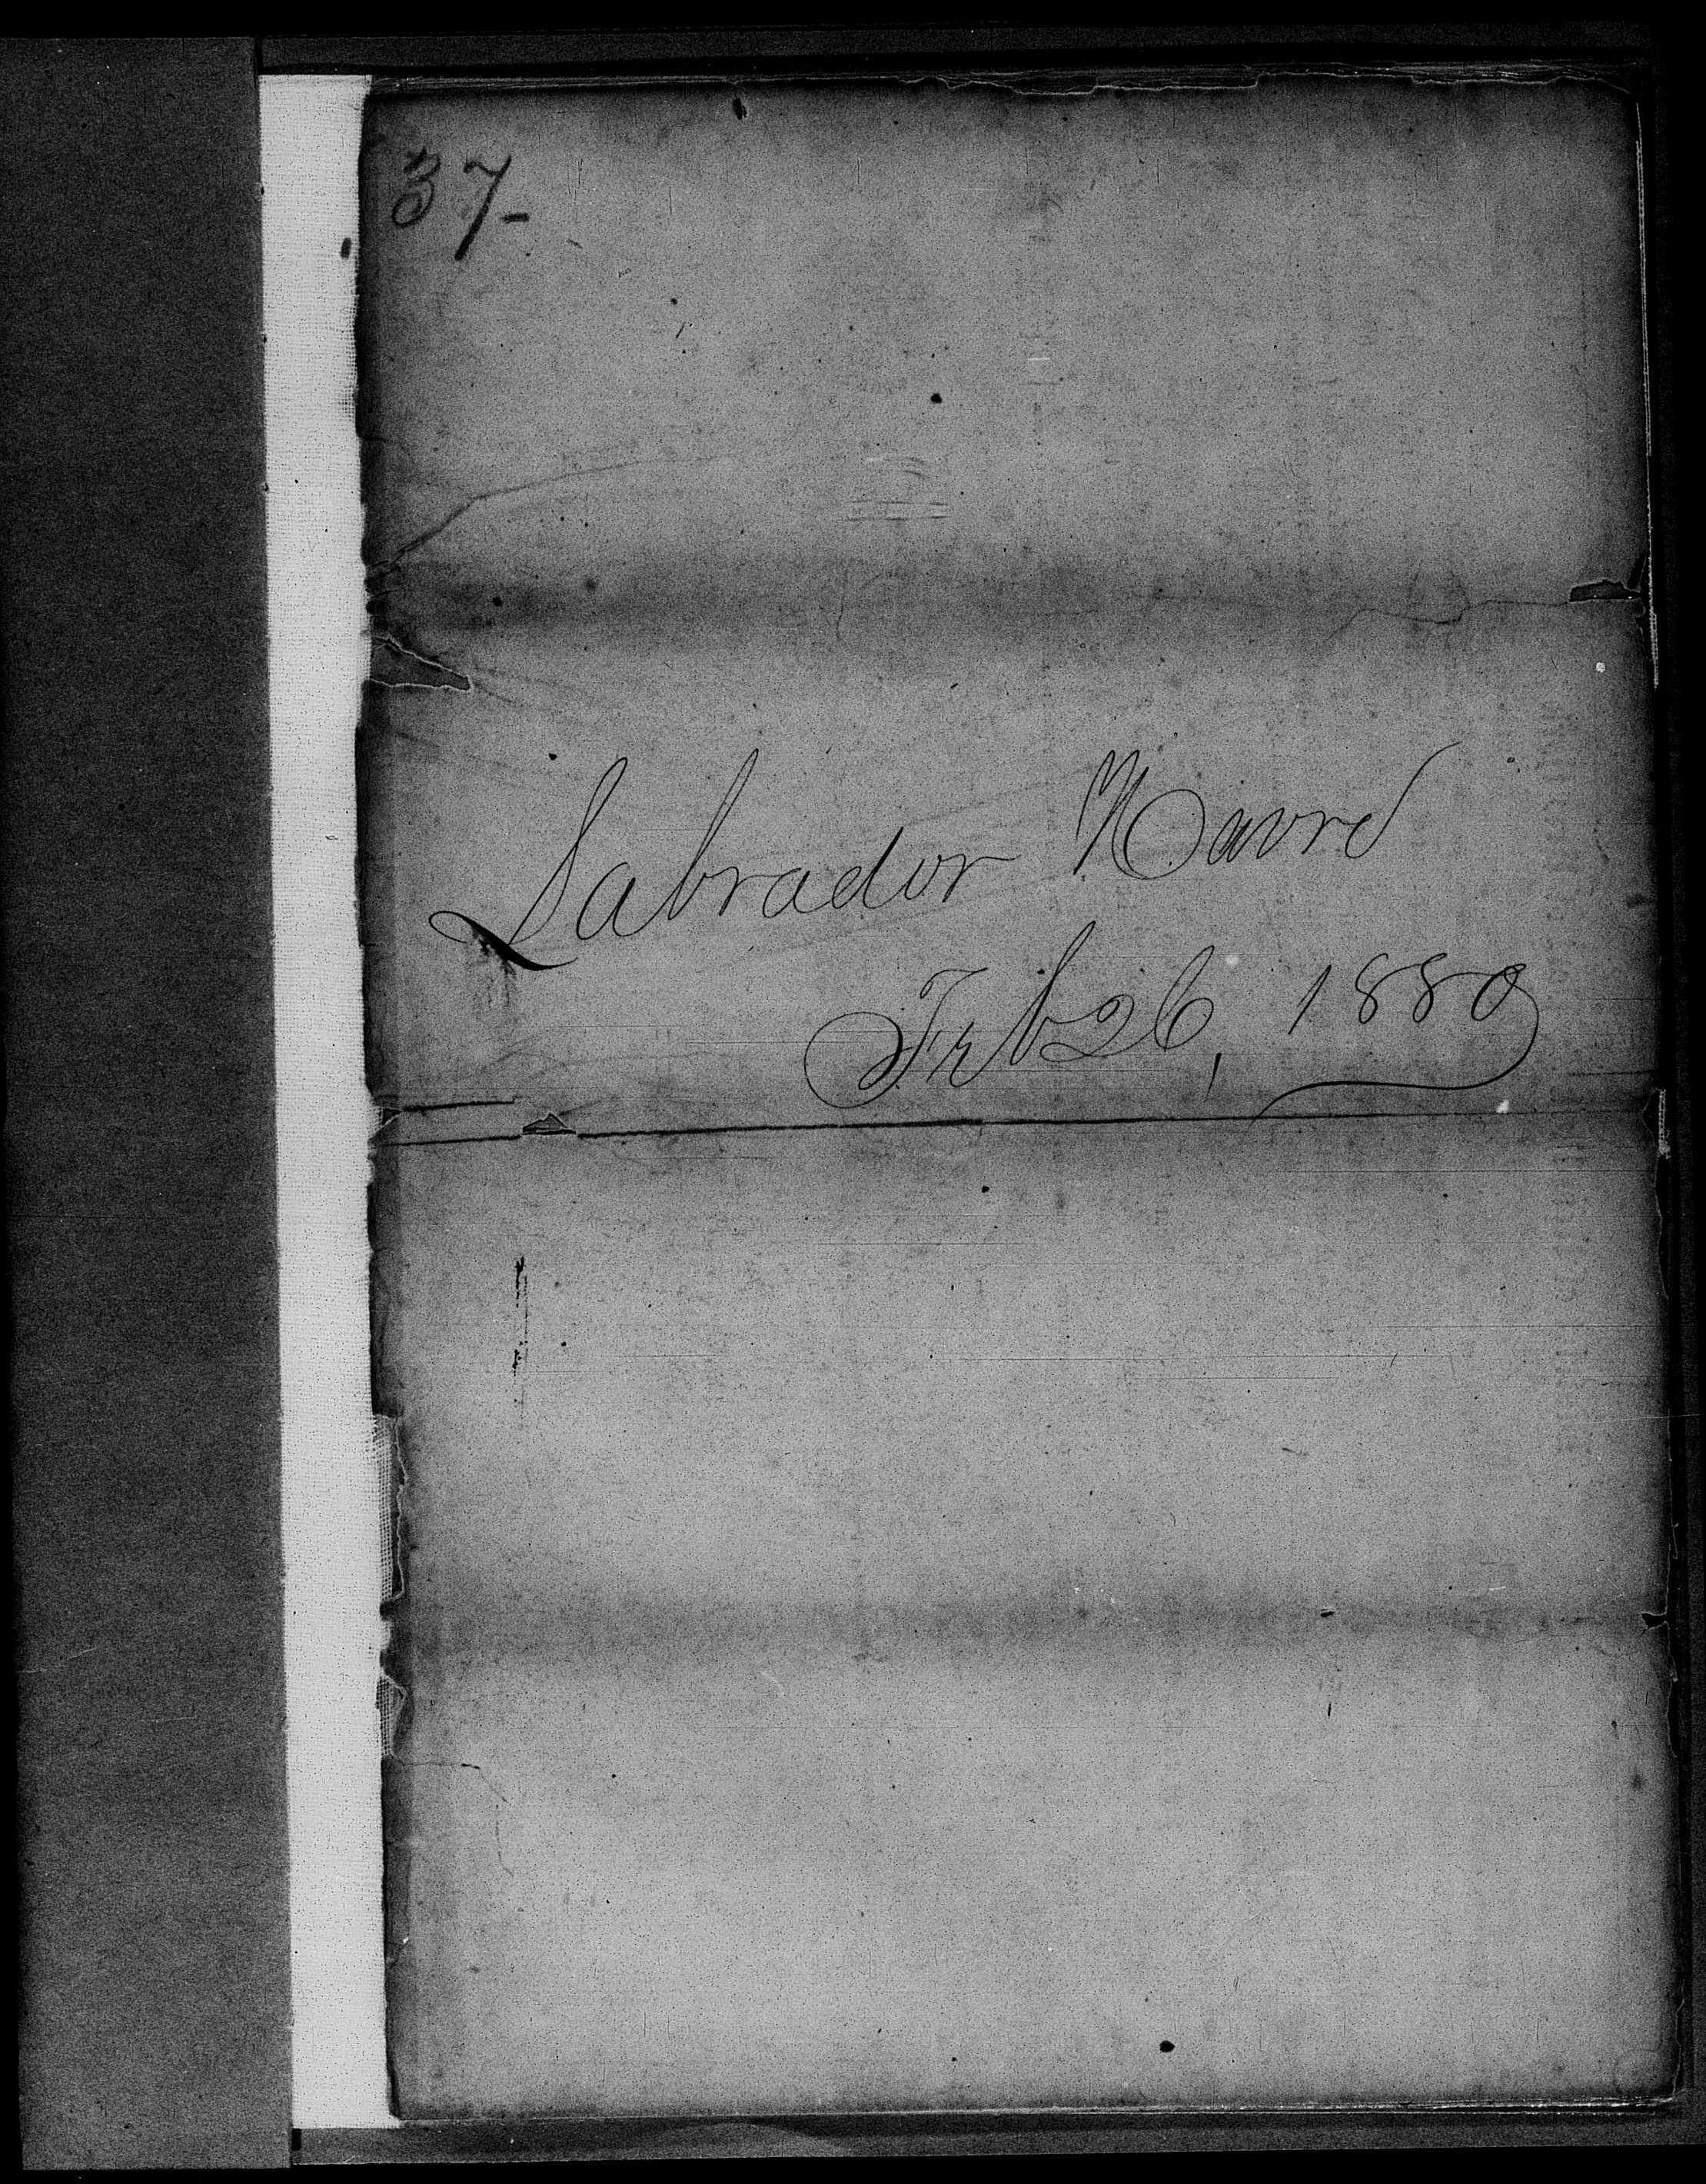 37-
Labrador Havre
Feb 26, 1880